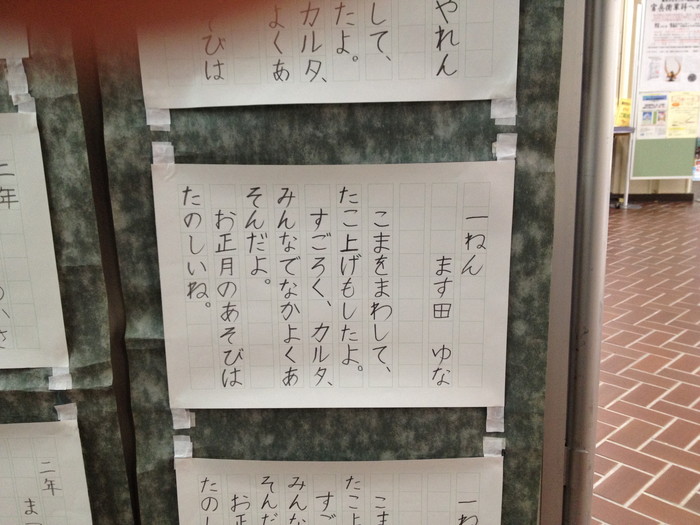 やれん
して、
たよ。
カルタ、
よくあ
びは
一ねん
ます田 ゆな
こまをまわして、
たこ上げもしたよ。
すごろく、カルタ、
みんなでなかよくあ
そんだよ。
お正月のあそびは
たのしいね。
一ね
こま
たこよ
すご
みんな
そんだ
お正
たのし
二年
二年
ま